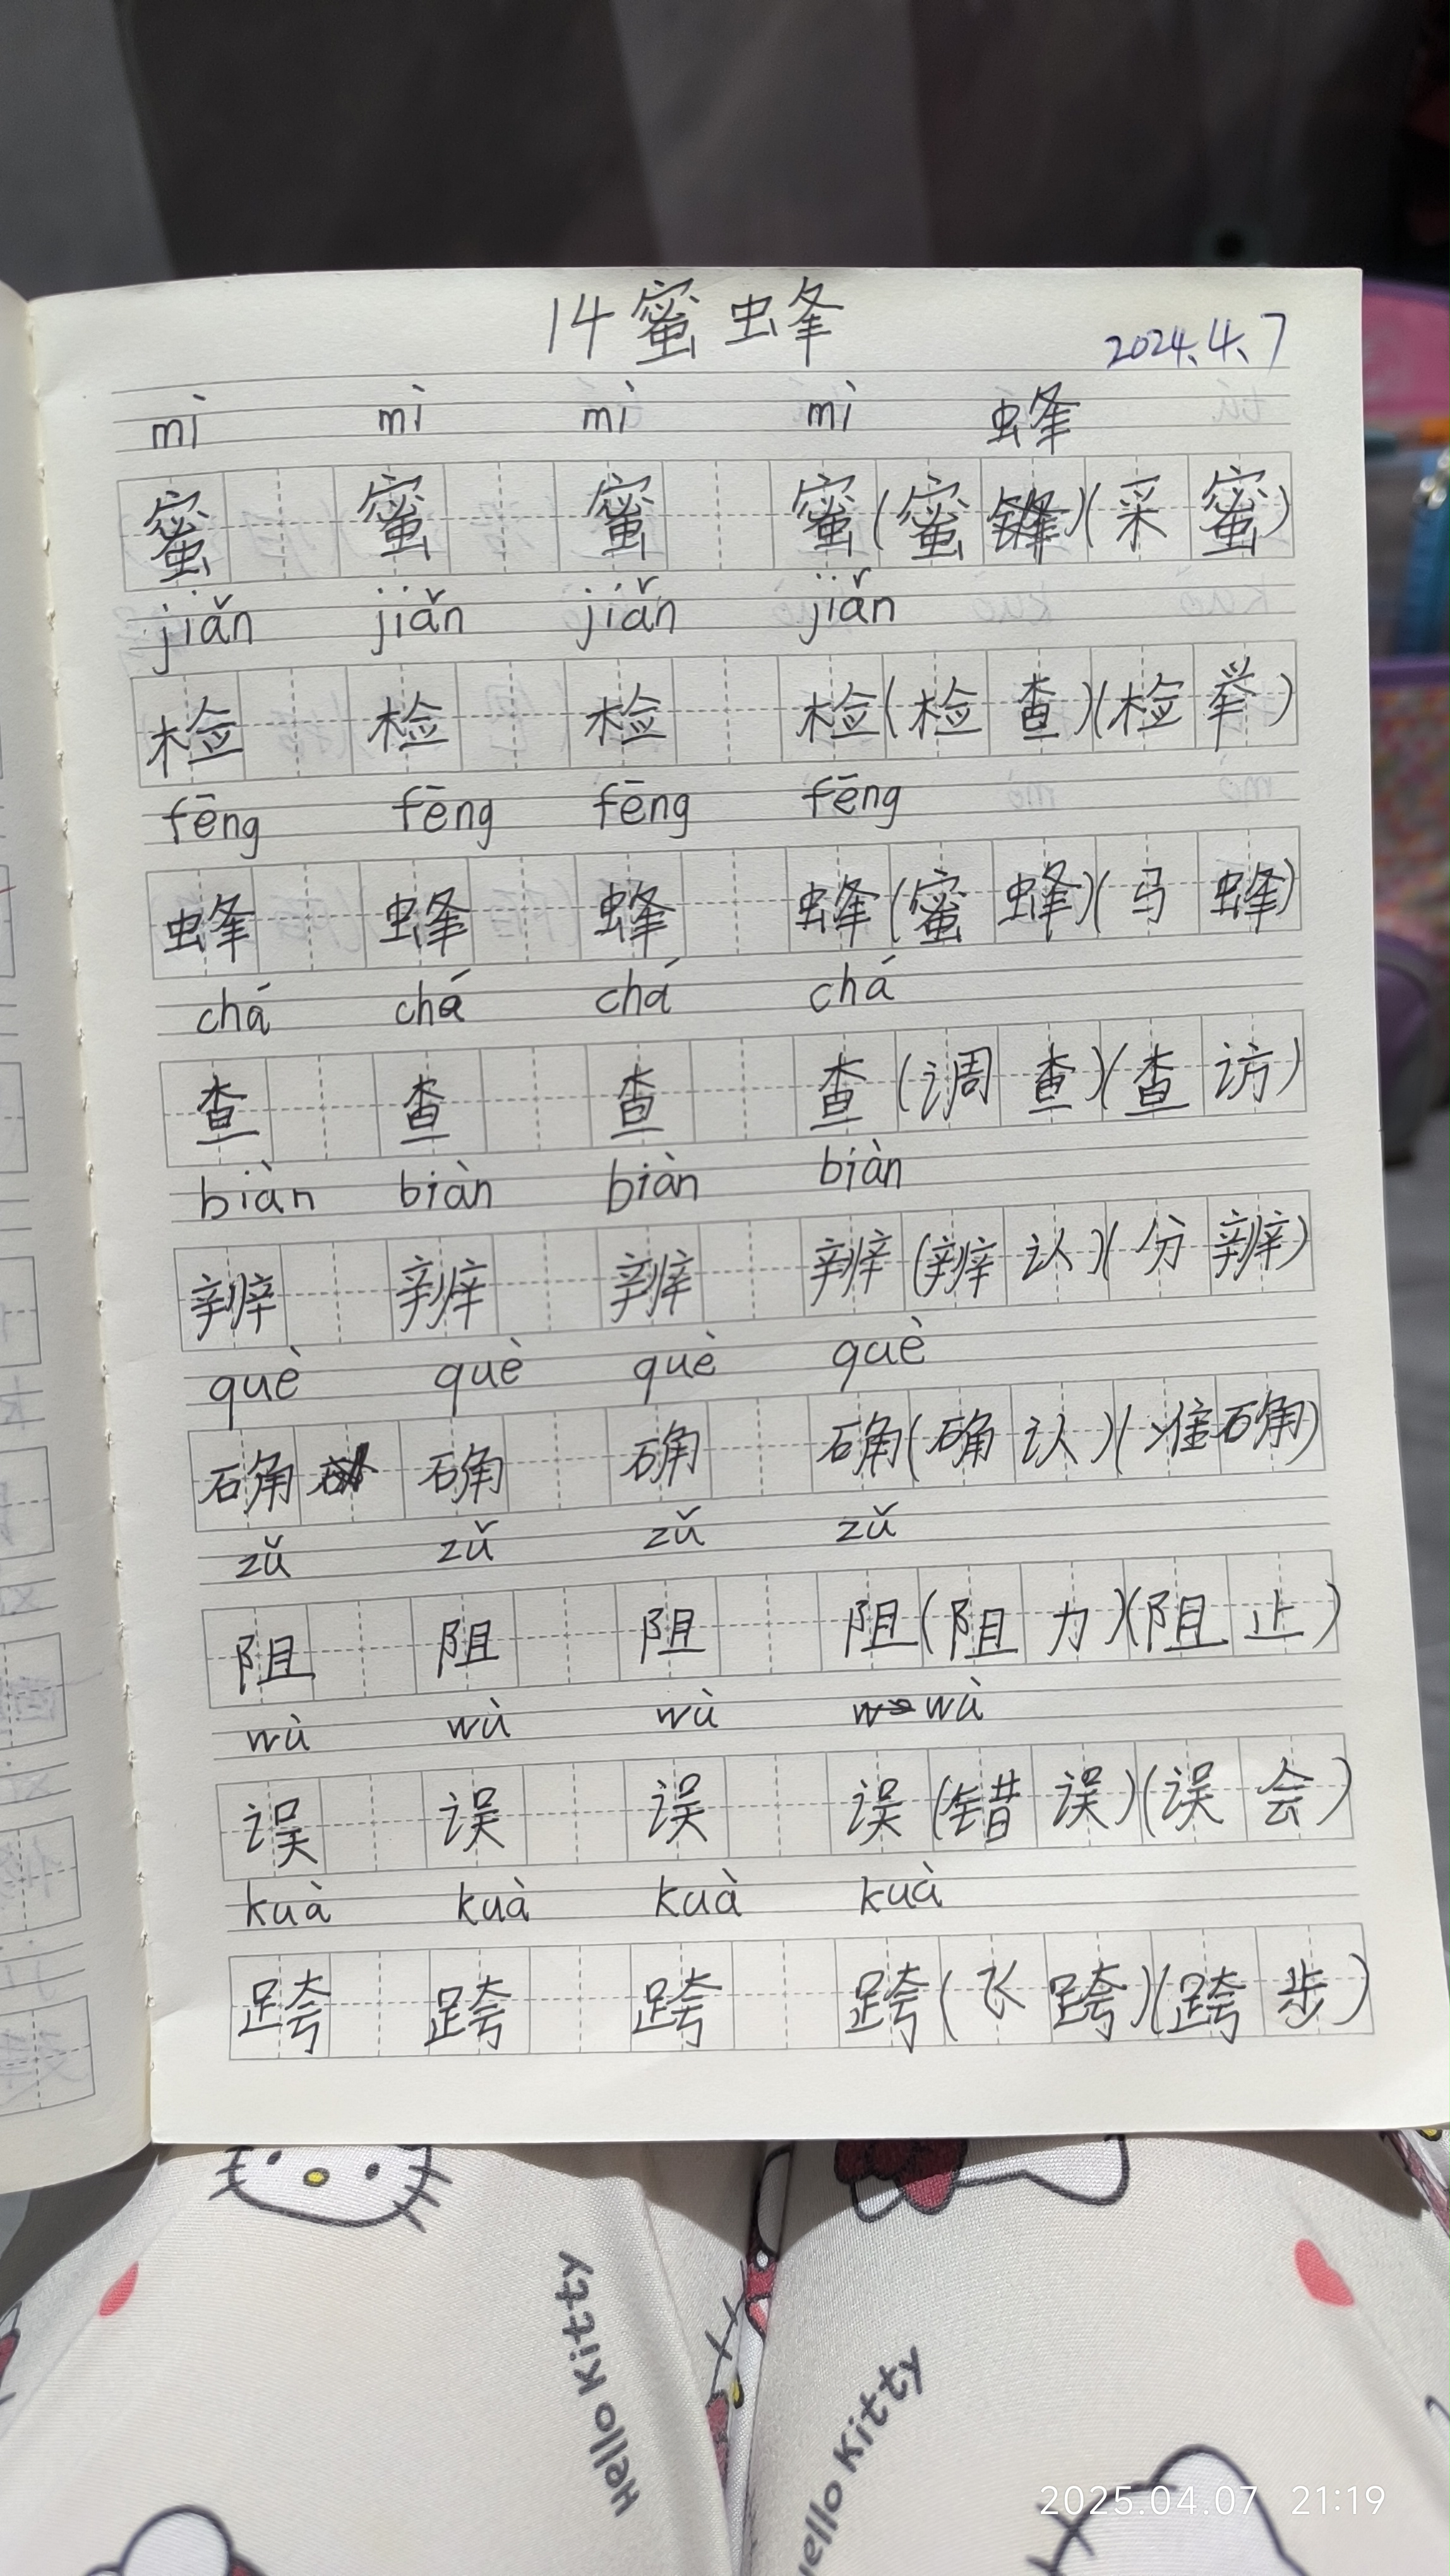 14 蜜蜂
2024.4.7
mì mì mì mì 蜂
蜜 蜜 蜜 蜜(蜜锋)(采蜜)
jiǎn jiǎn jiǎn jiǎn
检 检 检 检(检查)(检举)
fēng fēng fēng fēng
蜂 蜂 蜂 蜂(蜜蜂)(马蜂)
chá chá chá chá
查 查 查 查(调查)(查访)
biàn biàn biàn biàn
辨 辨 辨 辨(辨认)(分辨)
què què què què
确 确 确 确(确认)(准确)
zǔ zǔ zǔ zǔ
阻 阻 阻 阻(阻力)(阻止)
wù wù wù wù
误 误 误 误(错误)(误会)
kuà kuà kuà kuà
跨 跨 跨 跨(飞跨)(跨步)
Hello Kitty
Hello Kitty
2025.04.07 21:19